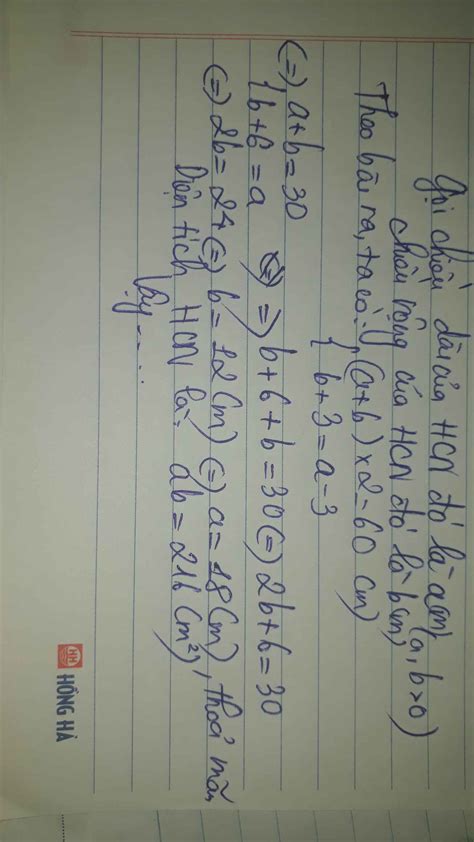 Gọi chiều dài của HCN đó là a(m)
chiều rộng của HCN đó là b(m) (a, b>0)
Theo bài ra, ta có: { (a+b) × 2 = 60 (m)
b+3 = a-3
(=) { a+b = 30
b+6 = a (=) => b+6+b = 30 (=) 2b+6 = 30
(=) 2b = 24 (=) b = 12 (m) (=) a = 18 (m), thoả mãn
Diện tích HCN là: ab = 216 (m²)
Vậy ....
HH HỒNG HÀ